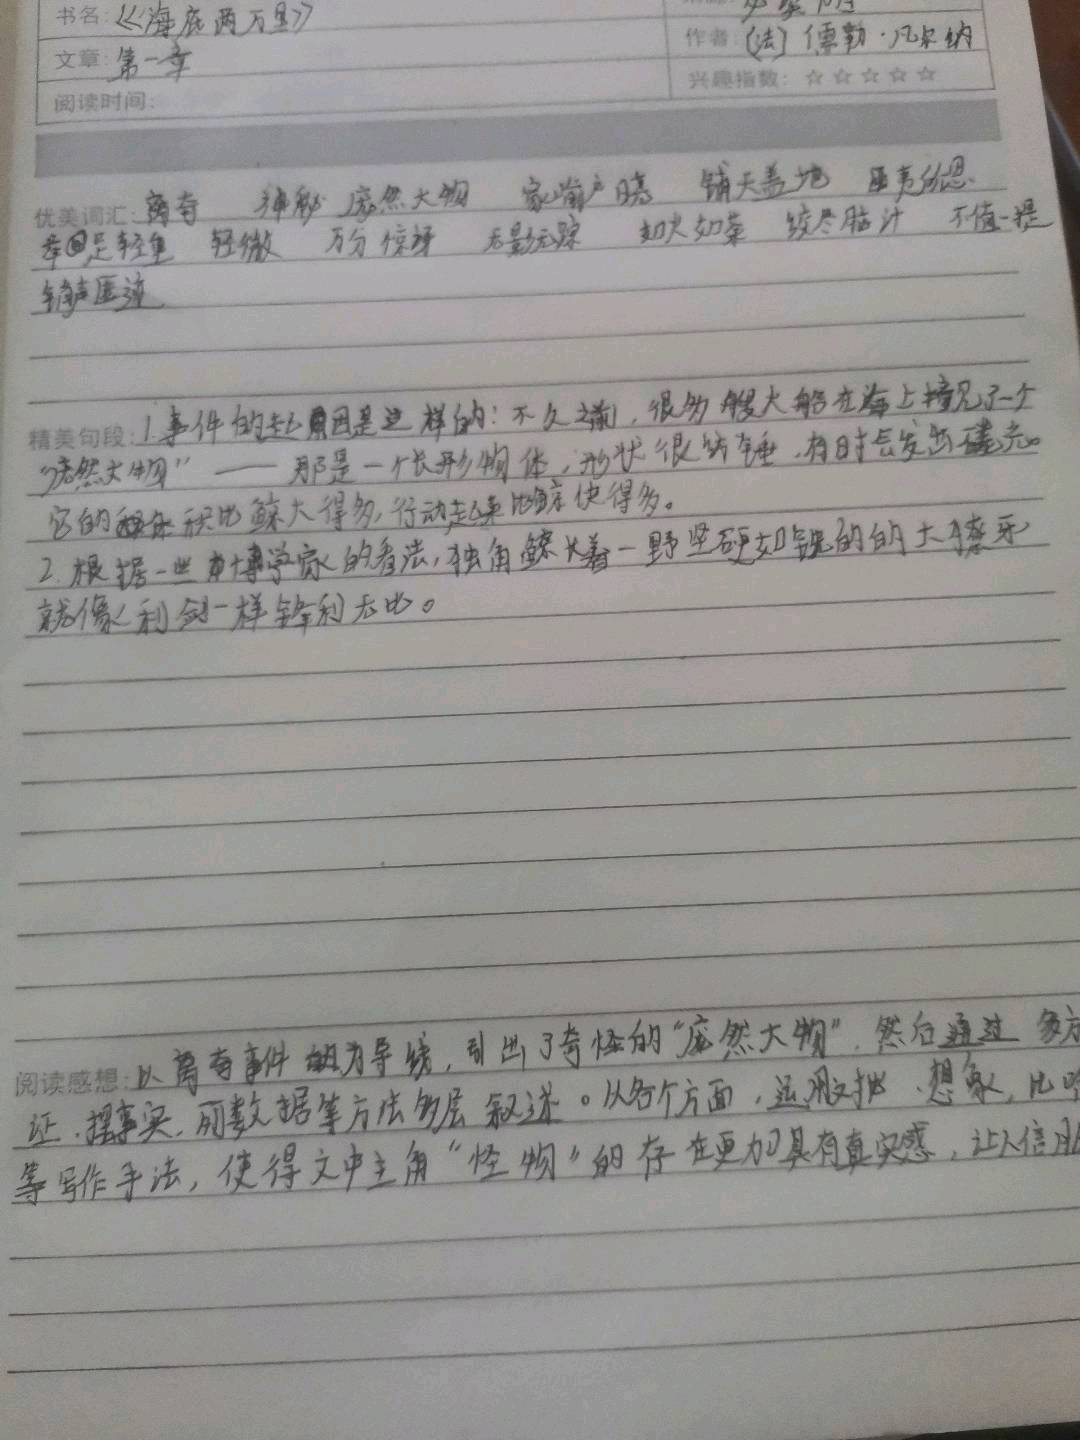 书名:《海底两万里》
作者:(法)儒勒·凡尔纳
文章:第一章
兴趣指数:☆☆☆☆☆
阅读时间:
优美词汇:离奇 神秘 庞然大物 家喻户晓 铺天盖地 匪夷所思
举足轻重 轻微 万分惊讶 无影无踪 如火如荼 绞尽脑汁 不值一提
销声匿迹
精美句段:1.事件的起因是这样的:不久之前,很多艘大船在海上撞见了一个
"庞然大物"——那是一个长形物体,形状很纺锤,有时会发出磷光。
它的体积比鲸大得多,行动起来比鲸快得多。
2.根据一些博学家的看法,独角鲸长着一野坚硬如钢的的大獠牙
就像利剑一样锋利无比。
阅读感想:以离奇事件为导线,引出了奇怪的"庞然大物",然后通过多方
证、摆事实、列数据等方法多层叙述。从各个方面,运用对比、想象,比喻
等写作手法,使得文中主角"怪物"的存在更加具有真实感,让人信服